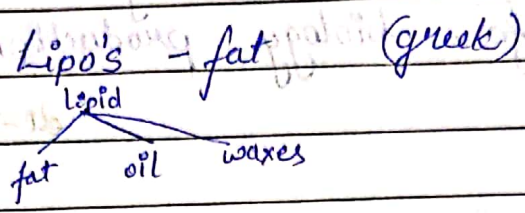 Lipo's - fat (greek)
Lipid
fat oil waxes